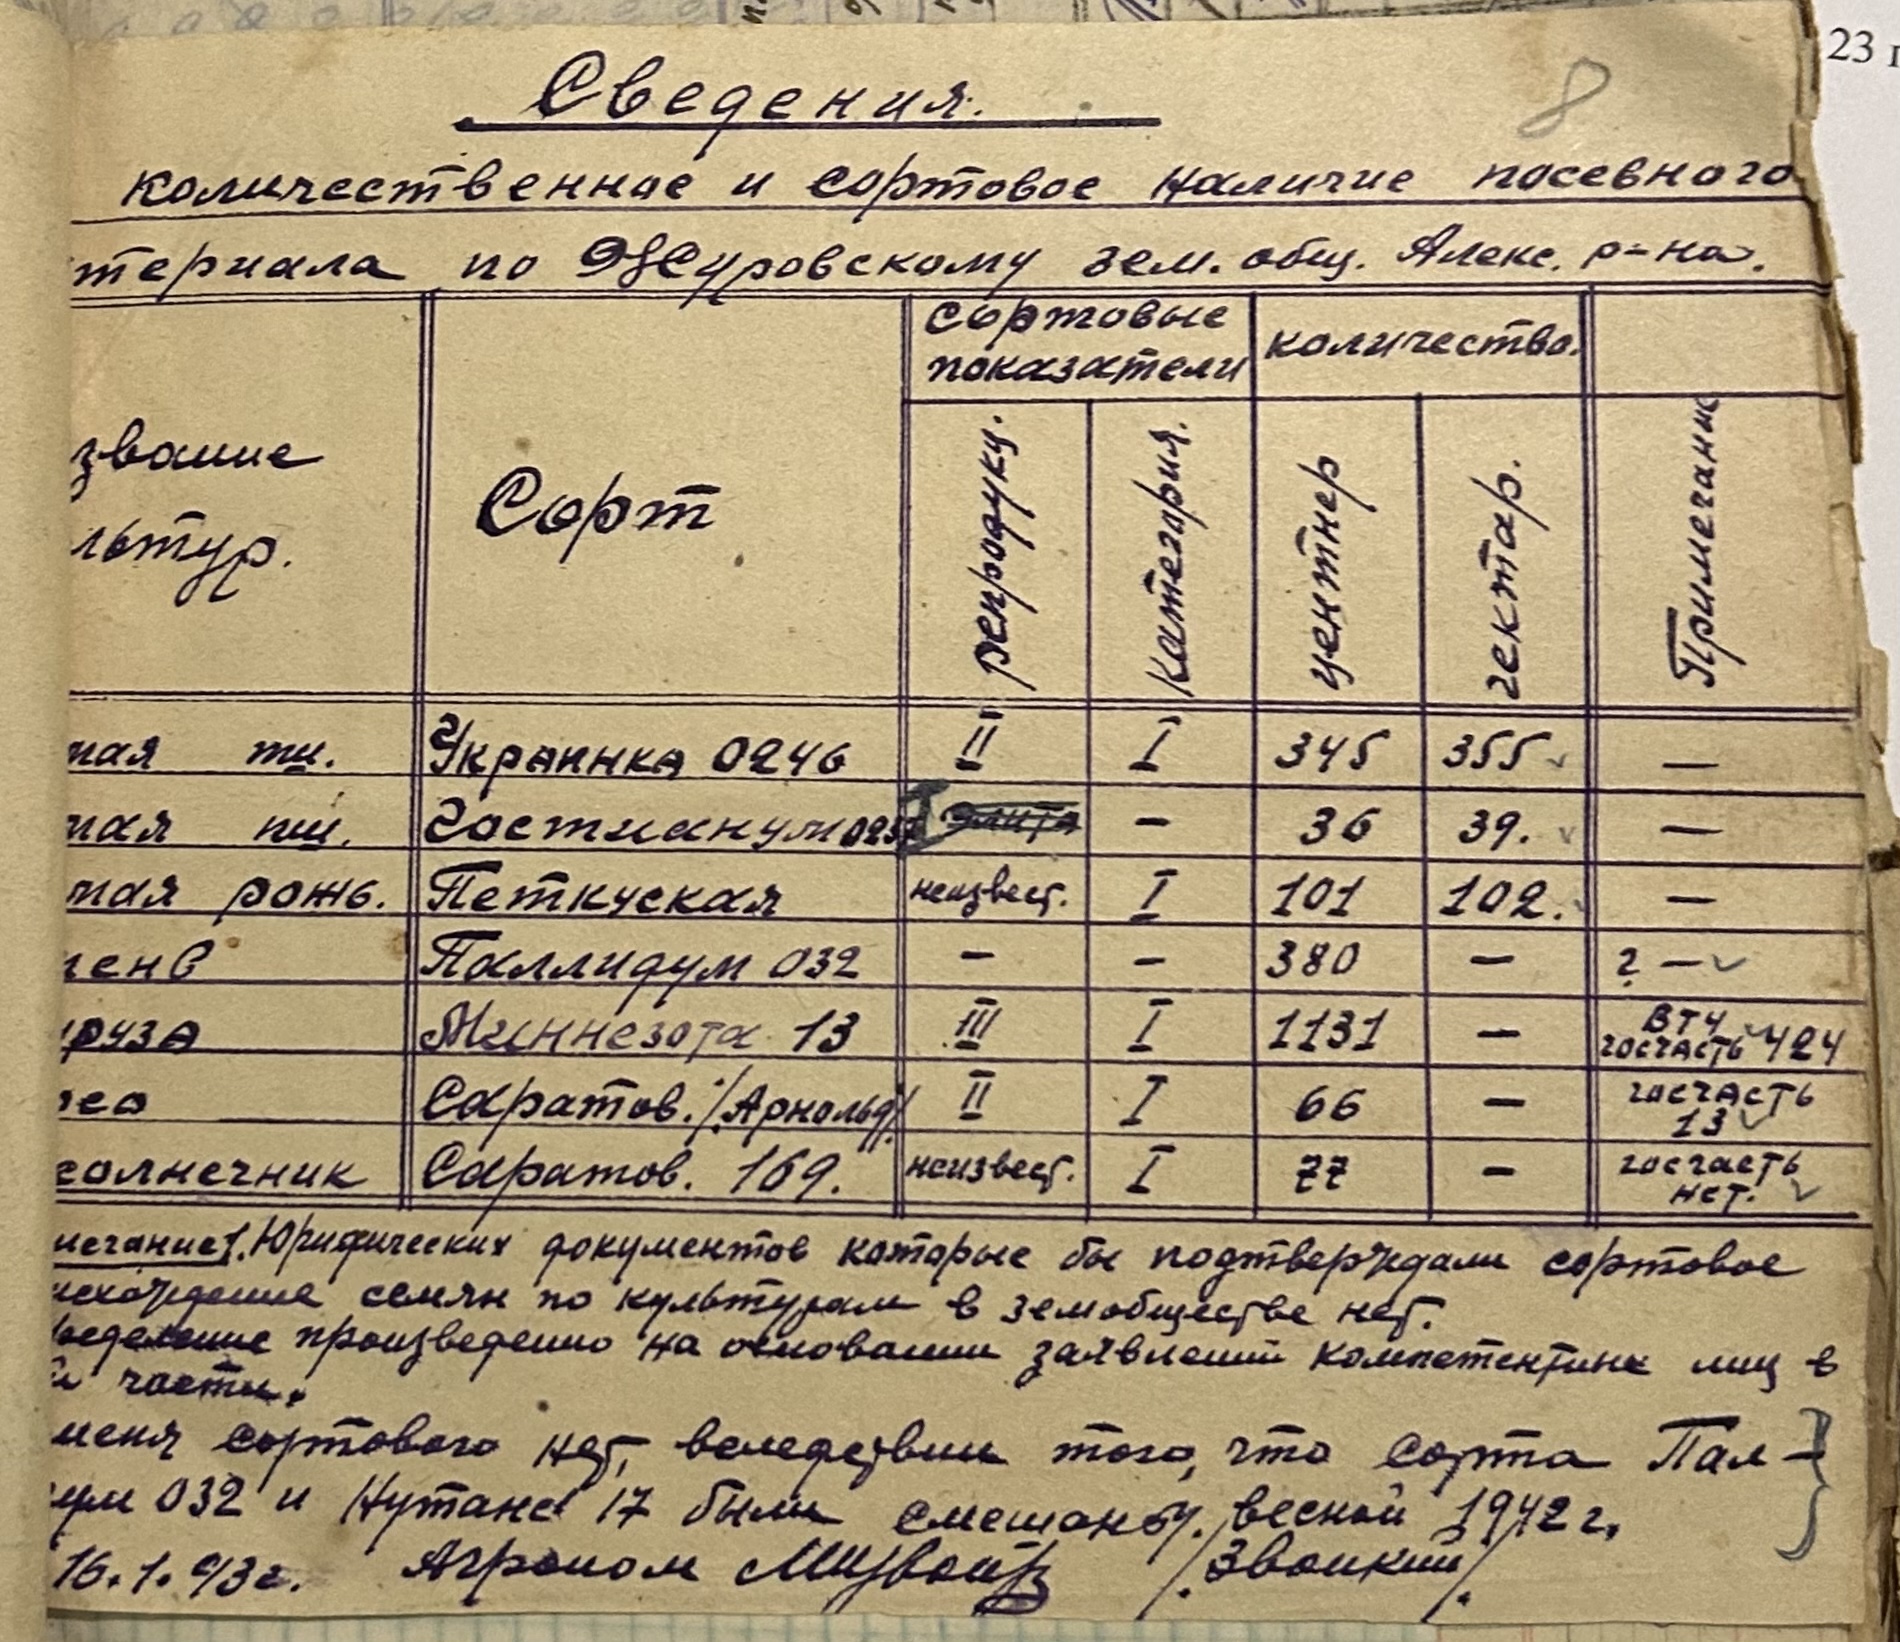 23 г
8
Сведения.
количественное и сортовое наличие посевного
териала по Джуровскому зем. общ. Алекс. р-на.
звание
льтур.
Сорт
Сортовые
показатели
количество.
репродукц.
Категория.
центнер
гектар.
Примечание
мая пш. Украинка 0246 II I 345 355 —
мая пш. Гостианум I Элита — 36 39. —
мая рожь. Петкуская неизвест. I 101 102. —
мень Паллидум 032 — — 380 — ? —
уруза Миннезота 13 III I 1131 — ВТЧ госчасть 424
Саратов. /Арнольд/ II I 66 — госчасть 13
солнечник Саратов. 169. неизвест. I 77 — госчасть нет.
мечание 1. Юридических документов которые бы подтверждали сортовое
исхождение семян по культурам в земобществе нет.
ределение произведенно на основании заявлений компетентных лиц в
й части.
меня сортового нет, вследствии того, что сорта Пал-
ум 032 и Нутанс 17 были смешаны весной 1942 г.
16.1.43г. Агроном /Звонкий/